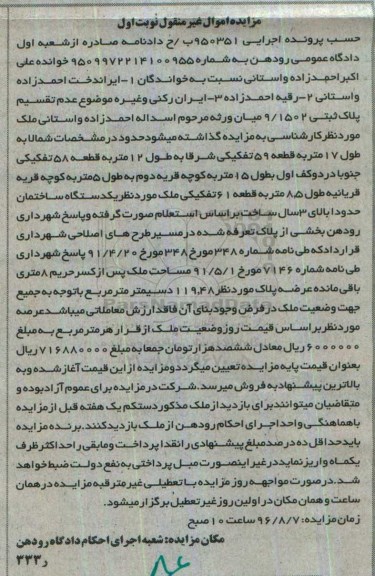 مزایده اموال غیر منقول نوبت اول
حسب پرونده اجرایی ۹۵۰۳۵۱ب/خ دادنامه صادره از شعبه اول
دادگاه عمومی رودهن به شماره ۹۵۰۹۹۷۲۲۱۴۱۰۰۹۵۵ خوانده علی
اکبر احمدزاده واستانی نسبت به خواندگان ۱-ایراندخت احمدزاده
واستانی ۲-رقیه احمدزاده ۳-ایران رکنی وغیره موضوع عدم تقسیم
پلاک ثبتی ۹/۱۵۰۲ میان ورثه مرحوم اسداله احمدزاده واستانی ملک
موردنظر کارشناسی به مزایده گذاشته میشود حدود در مشخصات شمالا به
طول ۱۷ متر به قطعه ۵۹ تفکیکی شرقا به طول ۱۲ متر به قطعه ۵۸ تفکیکی
جنوبا در دو کف اول بطول ۱۵ متر به کوچه قریه دوم به طول ۵ متر به کوچه قریه
قربانیه طول ۸۵ متر به قطعه ۶۱ تفکیکی ملک موردنظر یکدستگاه ساختمان
حدودا بالای ۳سال ساخت بر اساس استعلام صورت گرفته و پاسخ شهرداری
رودهن بخشی از پلاک تعرفه شده در مسیر طرح های اصلاحی شهرداری
قرار داد که طی نامه شماره ۳۴۸ مورخ ۳۴۸ مورخ ۹۱/۴/۲۰ پاسخ شهرداری
طی نامه شماره ۷۱۴۶ مورخ ۹۱/۵/۱ مساحت ملک پس از کسر حریم ۸ متری
باقی مانده عرصه پلاک موردنظر ۱۱۹,۴۸ دسیمتر مترمربع باتوجه به جمیع
جهت وضعیت ملک در فرض وجود بنای آن فاقد ارزش معاملاتی میباشد عرصه
موردنظر بر اساس قیمت روز وضعیت ملک از قرار هر مترمربع به مبلغ
۶۰۰۰۰۰۰ ریال معادل ششصد هزار تومان جمعا به مبلغ ۷۱۶۸۸۰۰۰۰ ریال
بعنوان قیمت پایه مزایده تعیین میگردد و مزایده از این قیمت آغاز شده و به
بالاترین پیشنهاد به فروش میرسد. شرکت در مزایده برای عموم آزاد بوده و
متقاضیان میتوانند برای بازدید از ملک مذکور دستکم یک هفته قبل از مزایده
باهماهنگی واحد اجرای احکام رودهن از ملک بازدید کنند. برنده مزایده
باید حداقل ده درصد مبلغ پیشنهادی را نقدا پرداخت و مابقی را حداکثر ظرف
یکماه واریز نماید در غیر اینصورت مبل پرداختی به نفع دولت ضبط خواهد
شد. در صورت مواجهه روز مزایده با تعطیلی غیر مترقبه مزایده در همان
ساعت و همان مکان در اولین روز غیر تعطیل برگزار میشود.
زمان مزایده: ۹۶/۸/۷ ساعت ۱۰ صبح
مکان مزایده: شعبه اجرای احکام دادگاه رودهن
۳۳۳ر